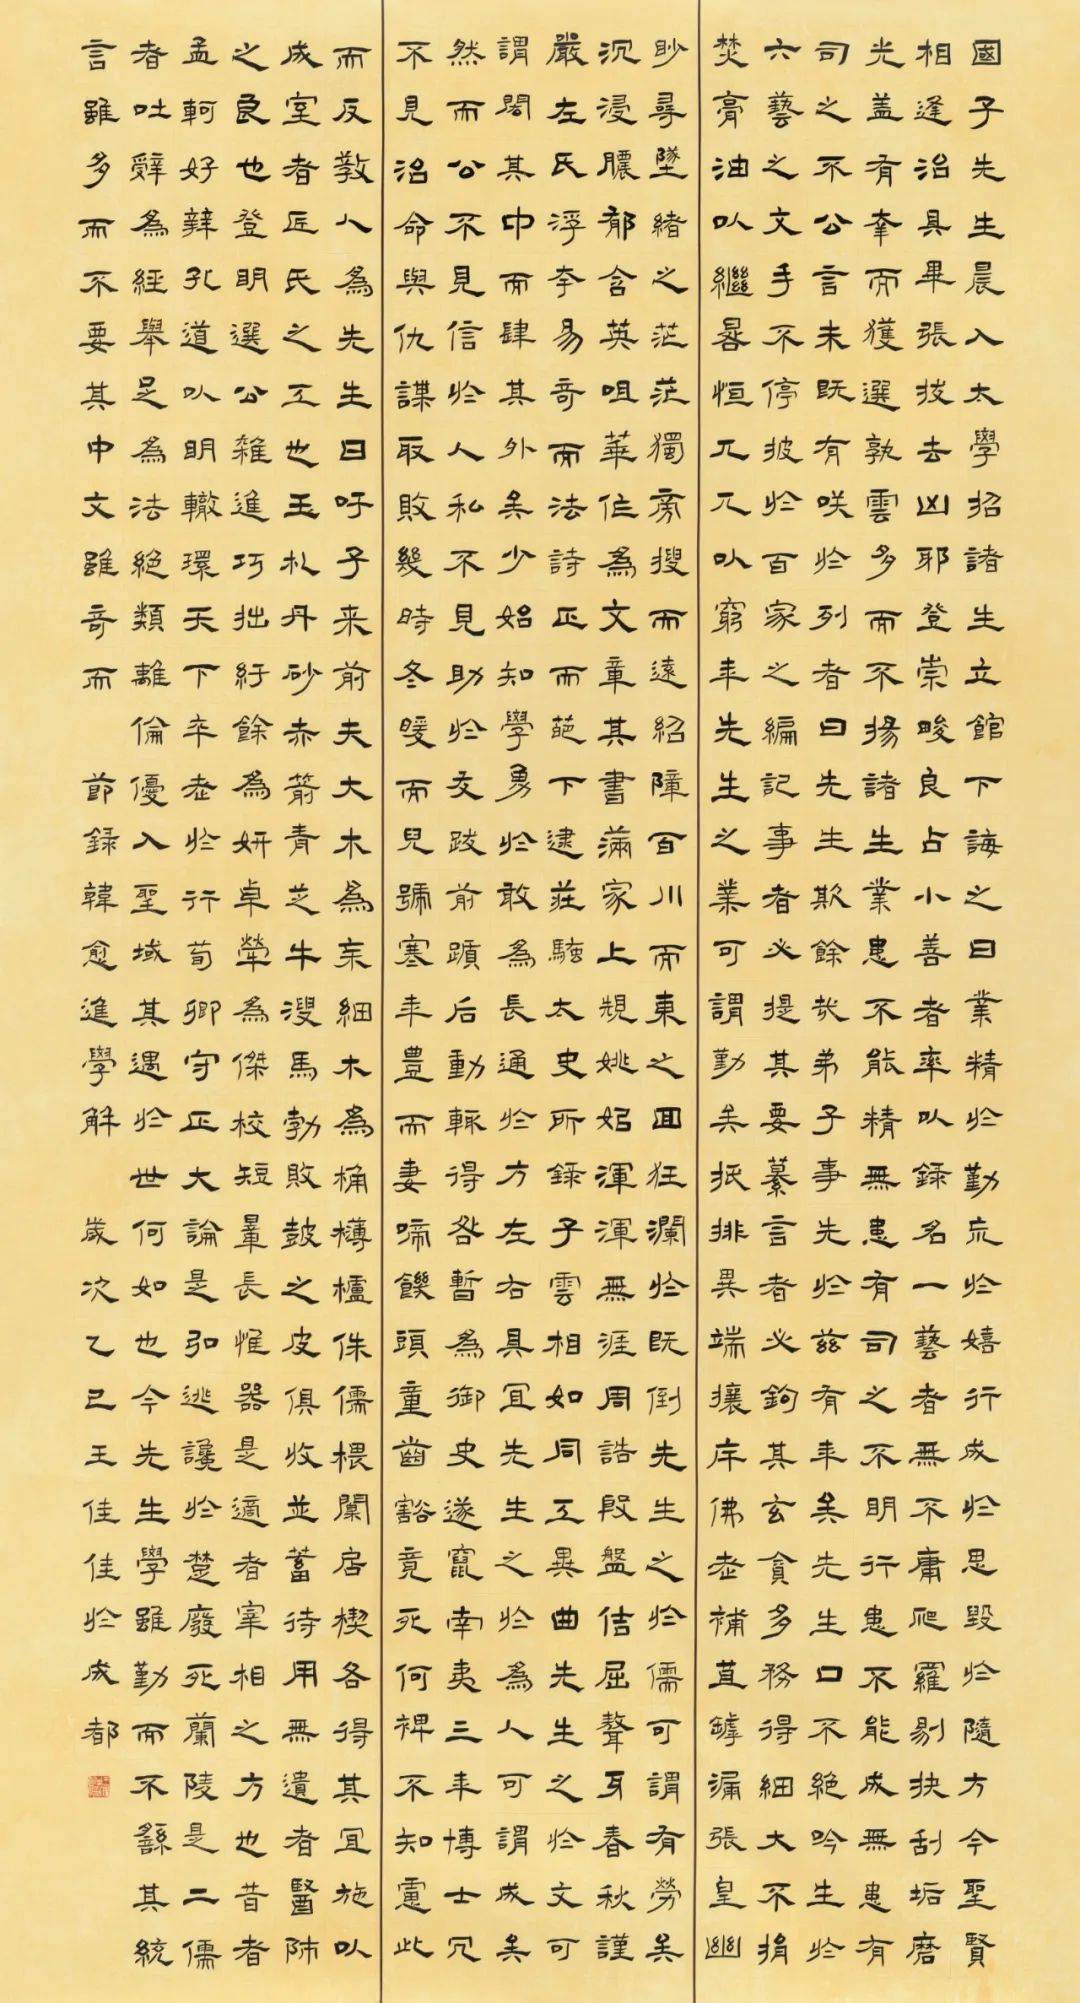 國子先生晨入太學招諸生立館下誨之曰業精於勤荒於嬉行成於思毀於隨方今聖賢
相逢治具畢張拔去凶邪登崇畯良占小善者率以錄名一藝者無不庸爬羅剔抉刮垢磨
光蓋有幸而獲選孰雲多而不揚諸生業患不能精無患有司之不明行患不能成無患有
司之不公言未既有咲於列者曰先生欺餘哉弟子事先於茲有年矣先生口不絕吟生於
六藝之文手不停披於百家之編記事者必提其要纂言者必鉤其玄貪多務得細大不捐
焚膏油以繼晷恒兀兀以窮年先生之業可謂勤矣抵排異端攘斥佛老補苴罅漏張皇幽
眇尋墜緒之茫茫獨旁搜而遠紹障百川而東之回狂瀾於既倒先生之於儒可謂有勞矣
沉浸醲郁含英咀華作為文章其書滿家上規姚姒渾渾無涯周誥殷盤佶屈聱牙春秋謹
嚴左氏浮夸易奇而法詩正而葩下逮莊騷太史所錄子雲相如同工異曲先生之於文可
謂閎其中而肆其外矣少始知學勇於敢為長通於方左右具宜先生之於為人可謂成矣
然而公不見信於人私不見助於友跋前躓后動輒得咎暫為御史遂竄南夷三年博士冗
不見治命與仇謀取敗幾時冬暖而兒號寒年豊而妻啼饑頭童齒豁竟死何裨不知慮此
而反教人為先生曰吁子来前夫大木為杗細木為桷欂櫨侏儒椳闑扂楔各得其宜施以
成室者匠氏之工也玉札丹砂赤箭青芝牛溲馬勃敗鼓之皮俱收並蓄待用無遺者醫師
之良也登明選公雜進巧拙紆餘為妍卓犖為傑校短量長惟器是適者宰相之方也昔者
孟軻好辯孔道以明轍環天下卒老於行荀卿守正大論是弘逃讒於楚廢死蘭陵是二儒
者吐辭為經舉足為法絕類離倫優入聖域其遇於世何如也今先生學雖勤而不繇其統
言雖多而不要其中文雖奇而 節錄韓愈進學解 歲次乙巳王佳佳於成都